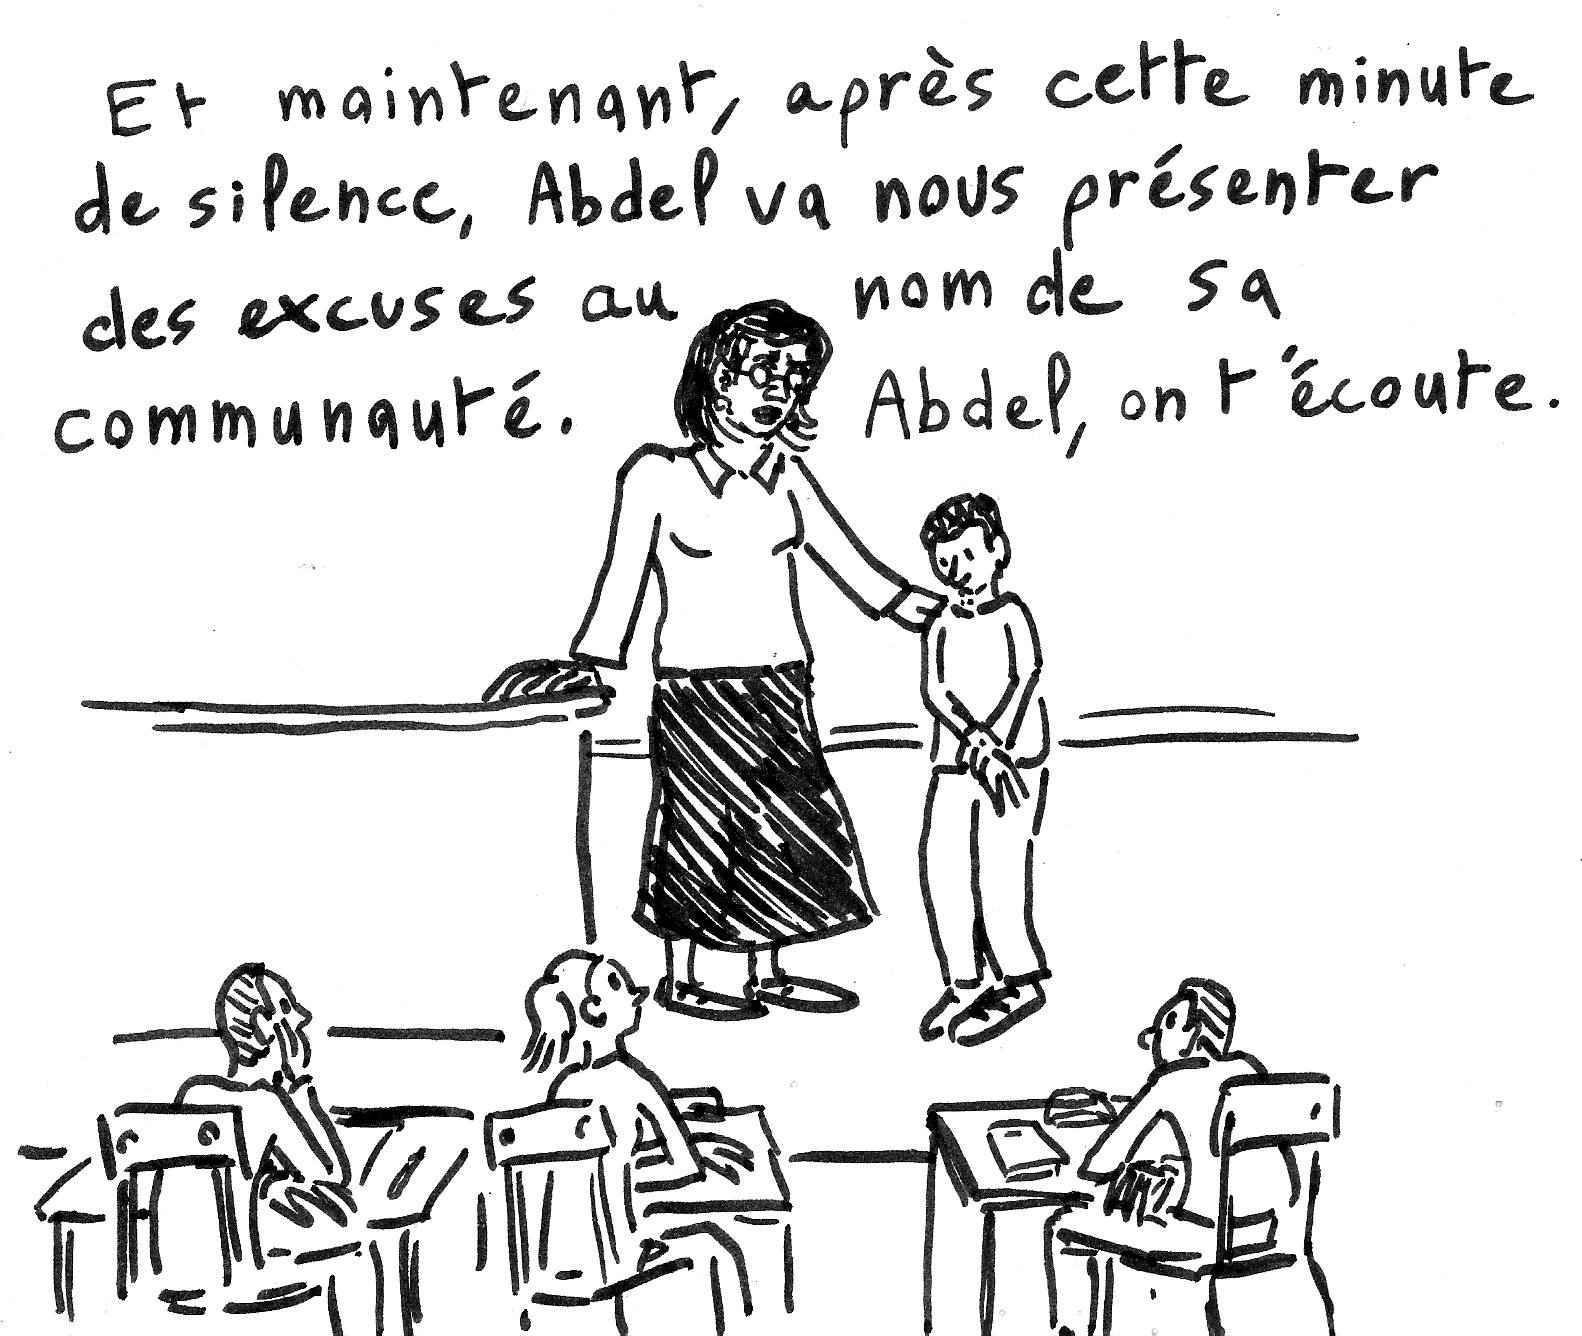 Et maintenant, après cette minute
de silence, Abdel va nous présenter
des excuses au nom de sa
communauté. Abdel, on t'écoute.